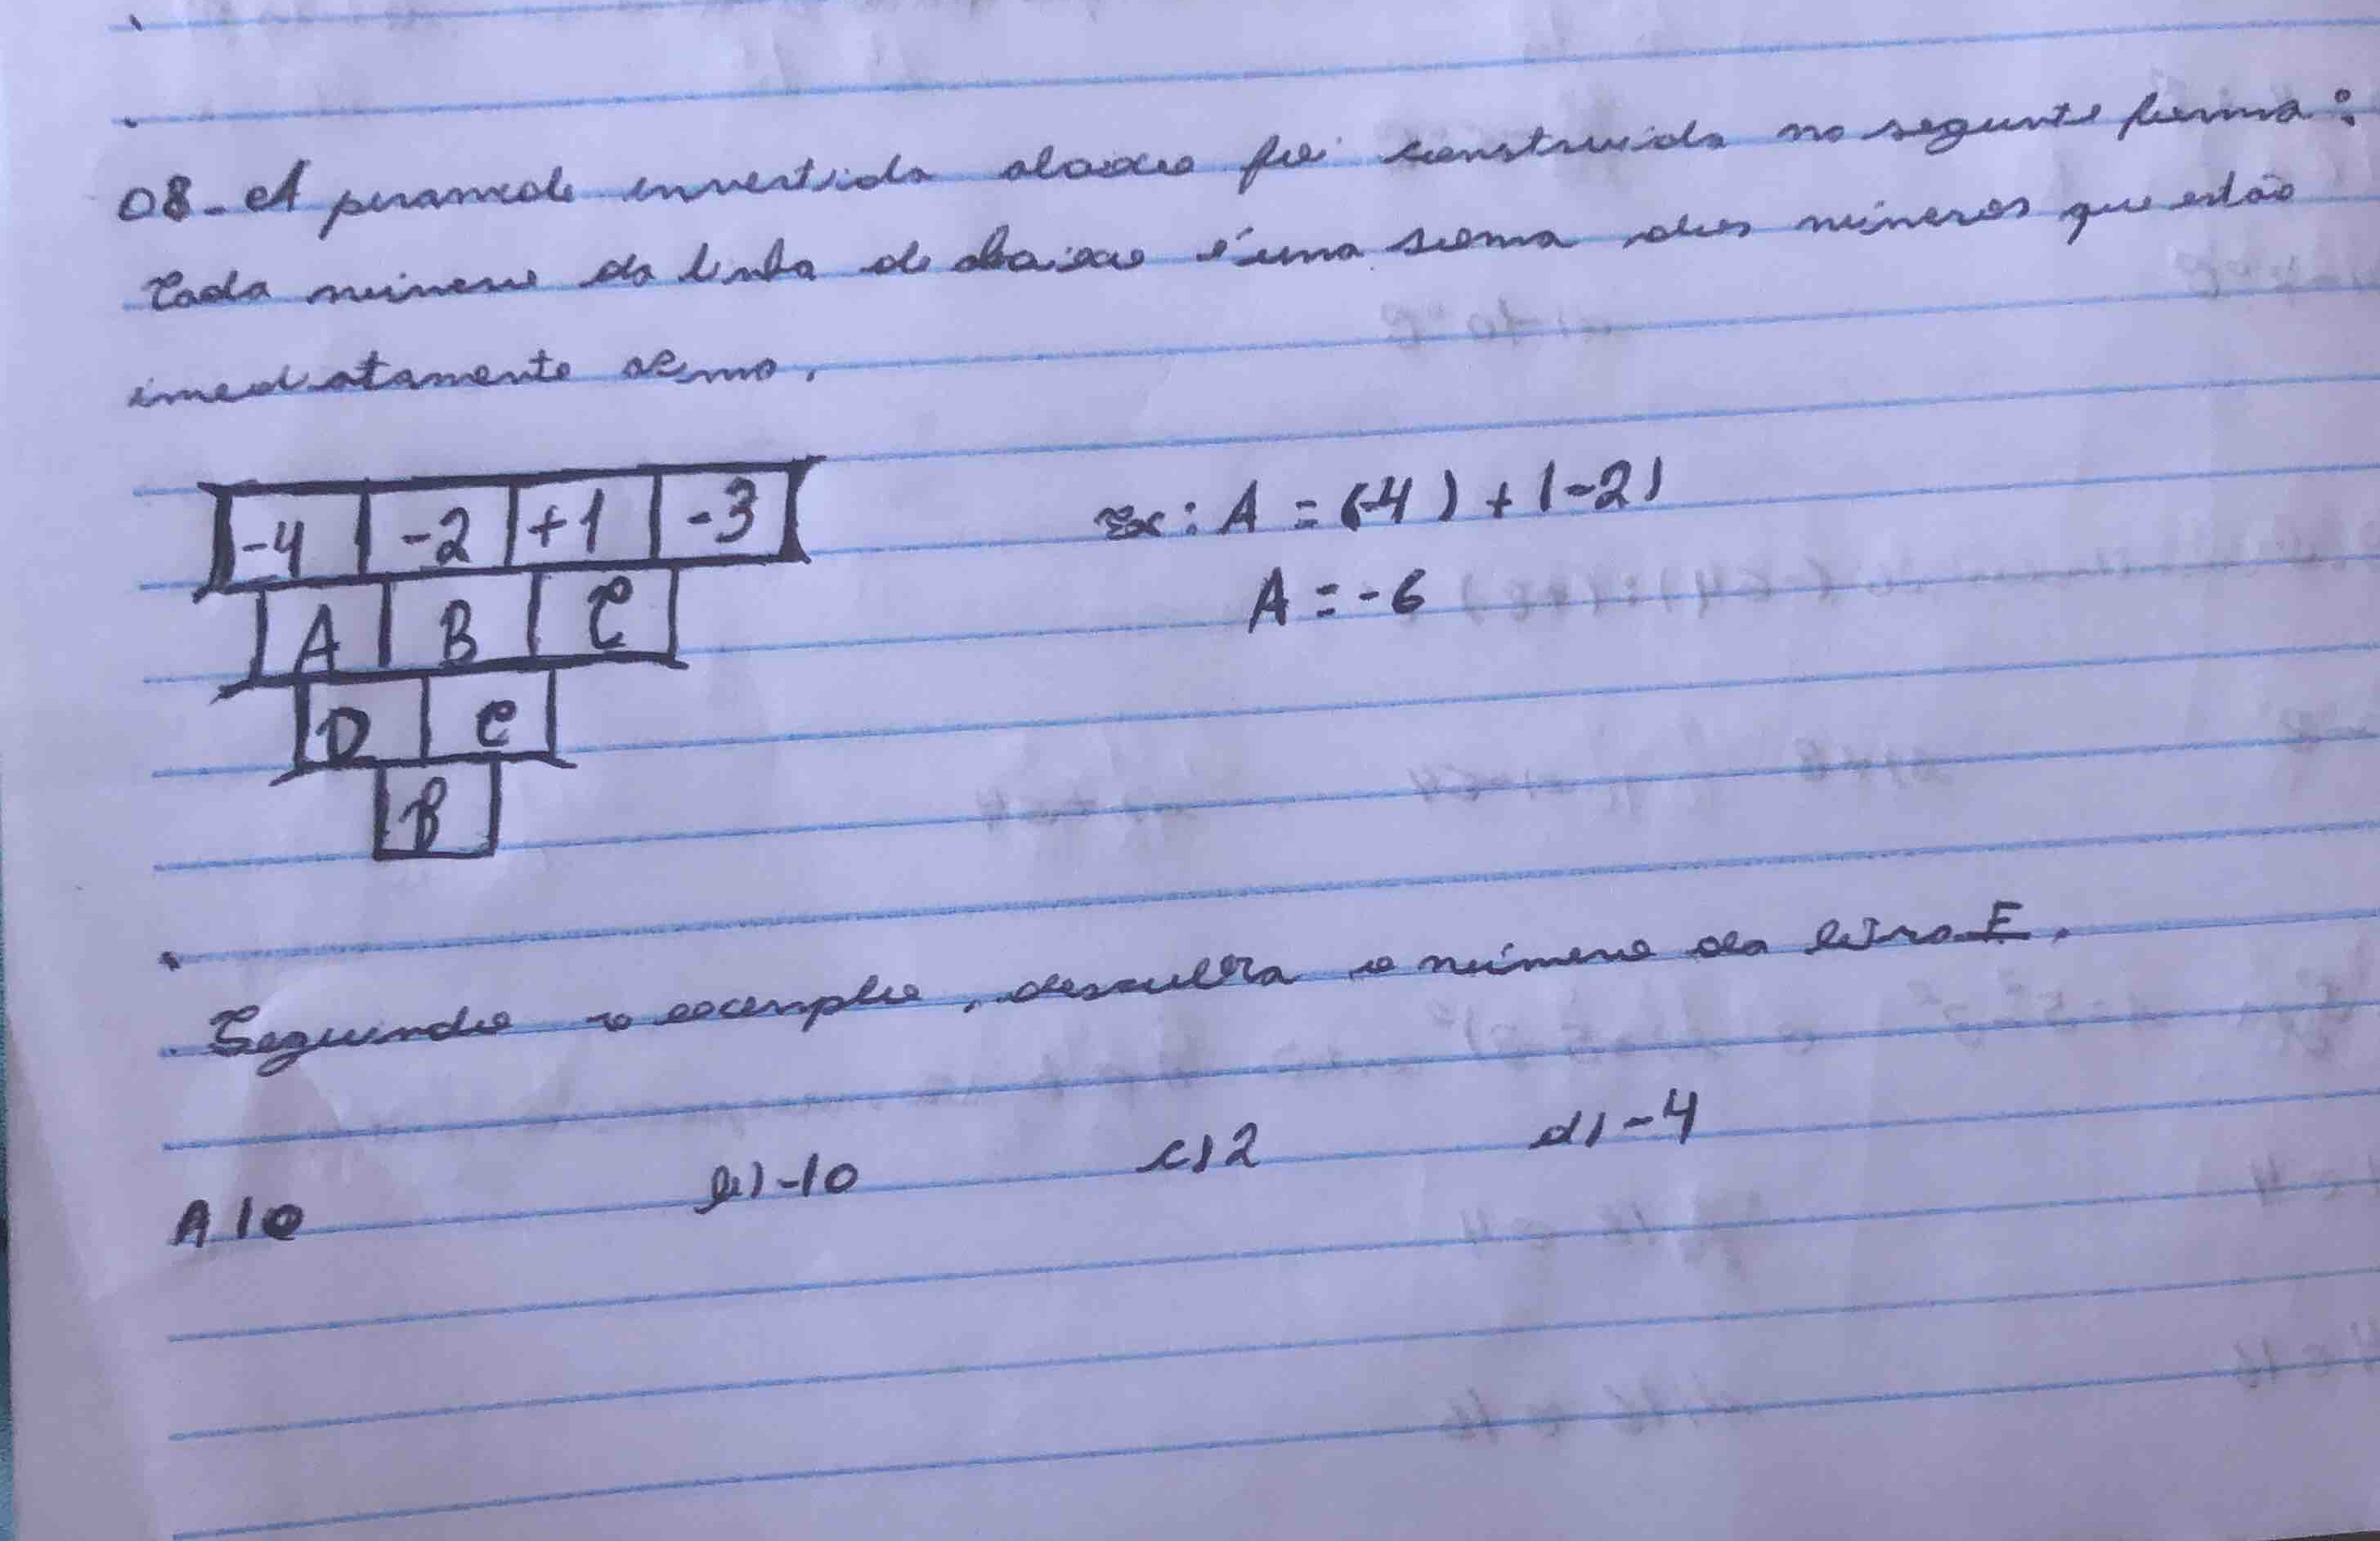 08-A piramede invertida abaixo foi construida na segunte forma:
Cada número da linha de abaixo é uma soma dos números que estão
imediatamente acima.
-4 -2 +1 -3
Ex: A = (-4) + (-2)
A B C
A = -6
D e
B
Seguindo o exemplo, descubra o número da letra F.
A) 0 b) -10 c) 2 d) -4